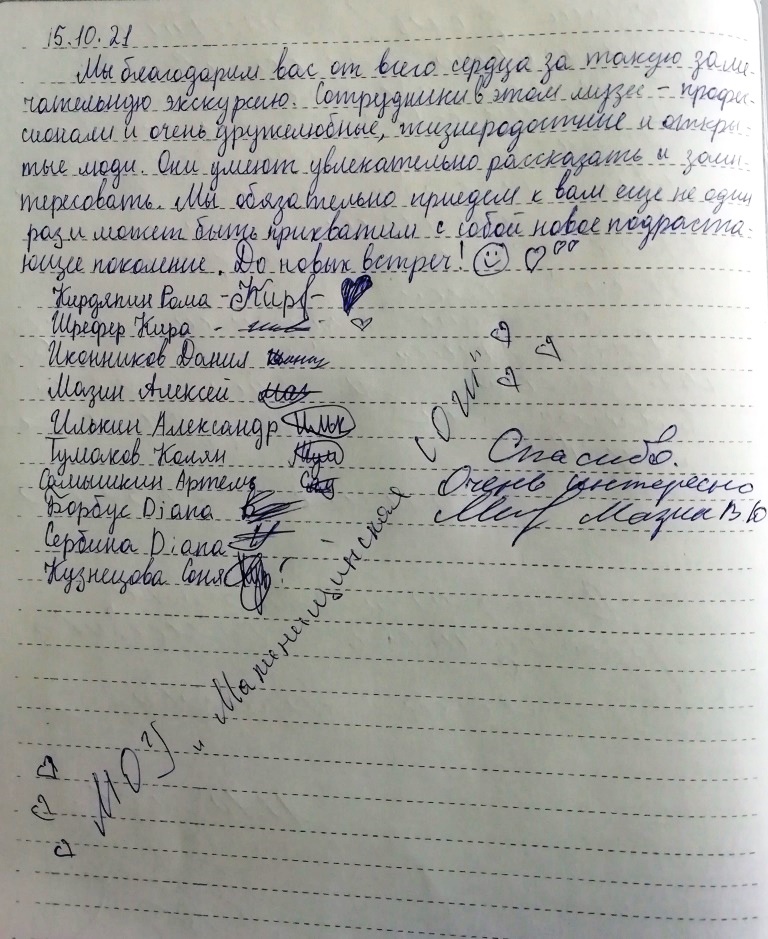 15.10.21
Мы благодарим вас от всего сердца за такую заме-
чательную экскурсию. Сотрудники в этом музее - профес-
сионалы и очень дружелюбные, жизнерадостные и откры-
тые люди. Они умеют увлекательно рассказать и заин-
тересовать. Мы обязательно приедем к вам еще не один
раз и может быть прихватим с собой новое подраста-
ющее поколение. До новых встреч!
Кирдяпин Рома - Кирд -
Шрефер Кира -
Иконников Данил
Мазин Алексей Маз
Илькин Александр Ильк
Тумаков Колян Тум
Самышкин Артемь Сам
Борбус Diana
Сербина Diana
Кузнецова Соня
Спасибо.
Очень интересно
Мазин В.Ю
"Маненьщинская СОШ"